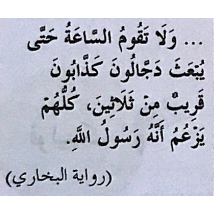 ... وَلَا تَقُومُ السَّاعَةُ حَتَّى
يُبْعَثَ دَجَّالُونَ كَذَّابُونَ
قَرِيبٌ مِنْ ثَلَاثِينَ، كُلُّهُمْ
يَزْعُمُ أَنَّهُ رَسُولُ اللَّهِ.
(رواية البخاري)